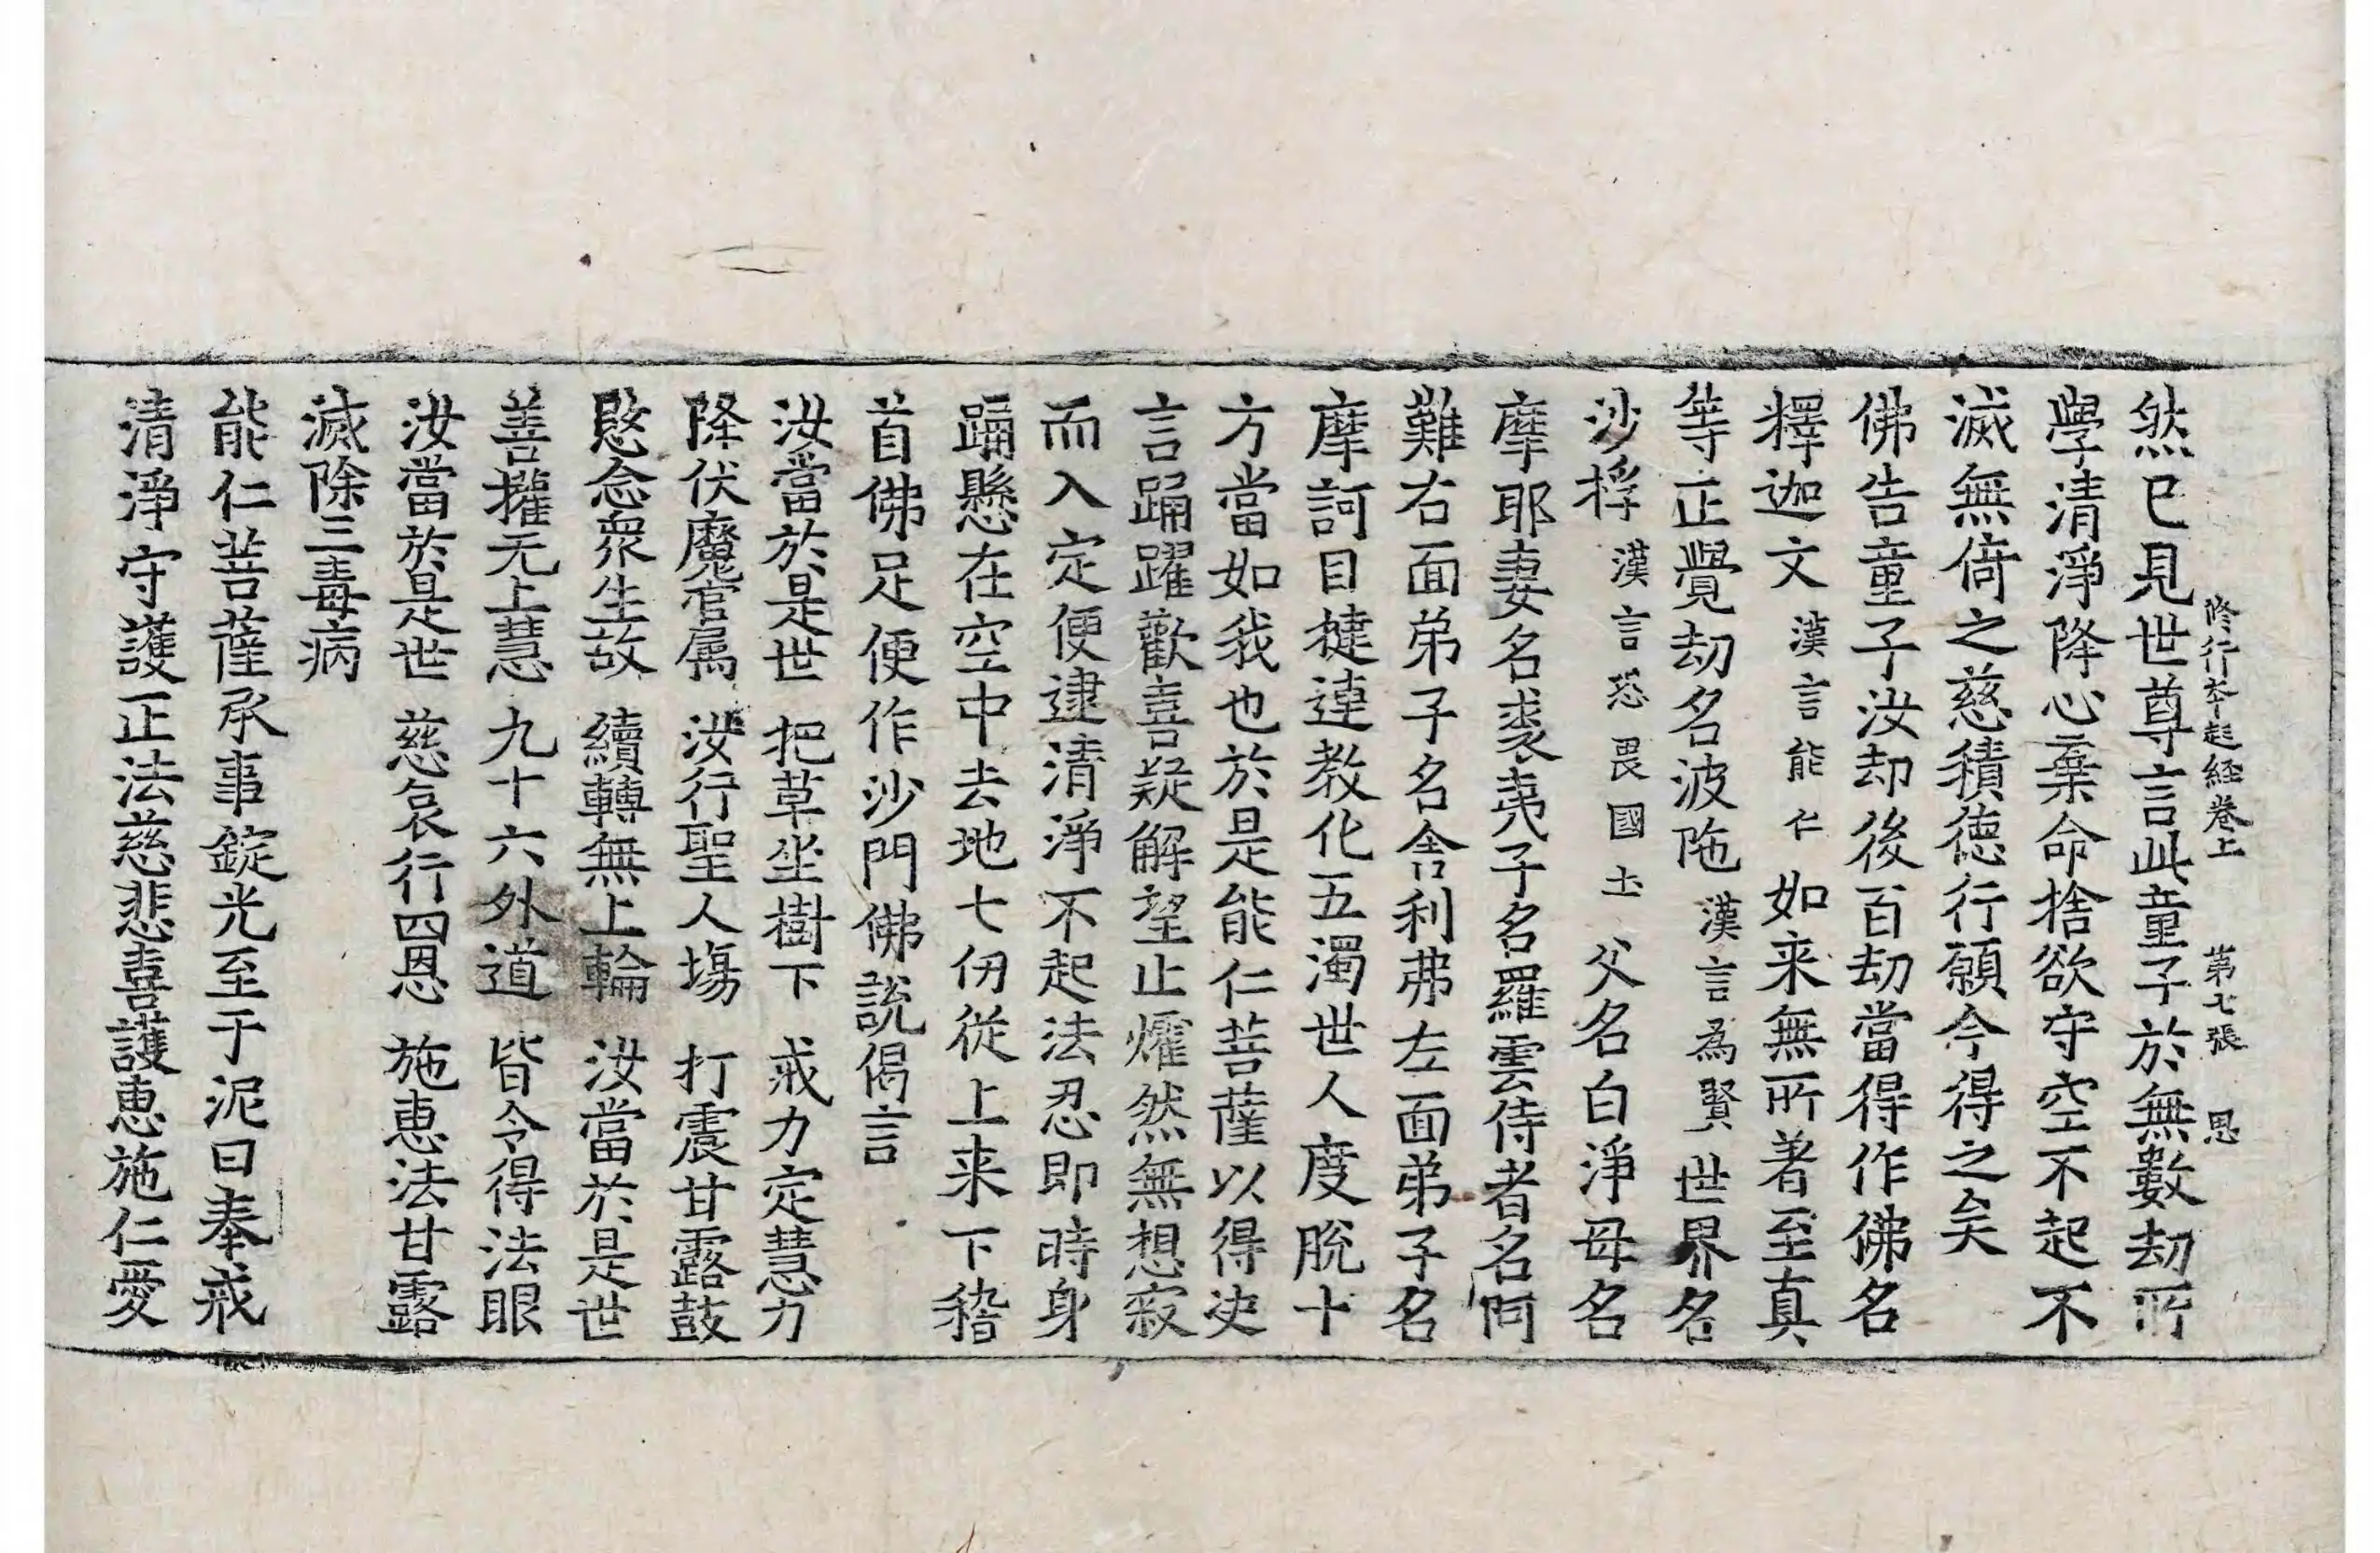 修行本起経卷上 第七張 恩
然巳見世尊言此童子於無數劫所
學清淨降心棄命捨欲守空不起不
滅無倚之慈積德行願今得之矣
佛告童子汝却後百劫當得作佛名
釋迦文漢言能仁如来無所著至真
等正覺劫名波陁漢言為賢世界名
沙桴漢言恐畏國土父名白淨母名
摩耶妻名裘夷子名羅雲侍者名阿
難右面弟子名舍利弗左面弟子名
摩訶目揵連教化五濁世人度脫十
方當如我也於是能仁菩薩以得决
言踊躍歡喜疑解望止燿然無想寂
而入定便逮清淨不起法忍即時身
踊懸在空中去地七仞從上来下稽
首佛足便作沙門佛說偈言
汝當於是世 把草坐樹下 戒力定慧力
降伏魔官属 汝行聖人塲 打震甘露鼓
愍念衆生故 續轉無上輪 汝當於是世
善攉无上慧 九十六外道 皆令得法眼
汝當於是世 慈哀行四恩 施惠法甘露
滅除三毒病
能仁菩薩承事錠光至于泥曰奉戒
清淨守護正法慈悲喜護惠施仁愛